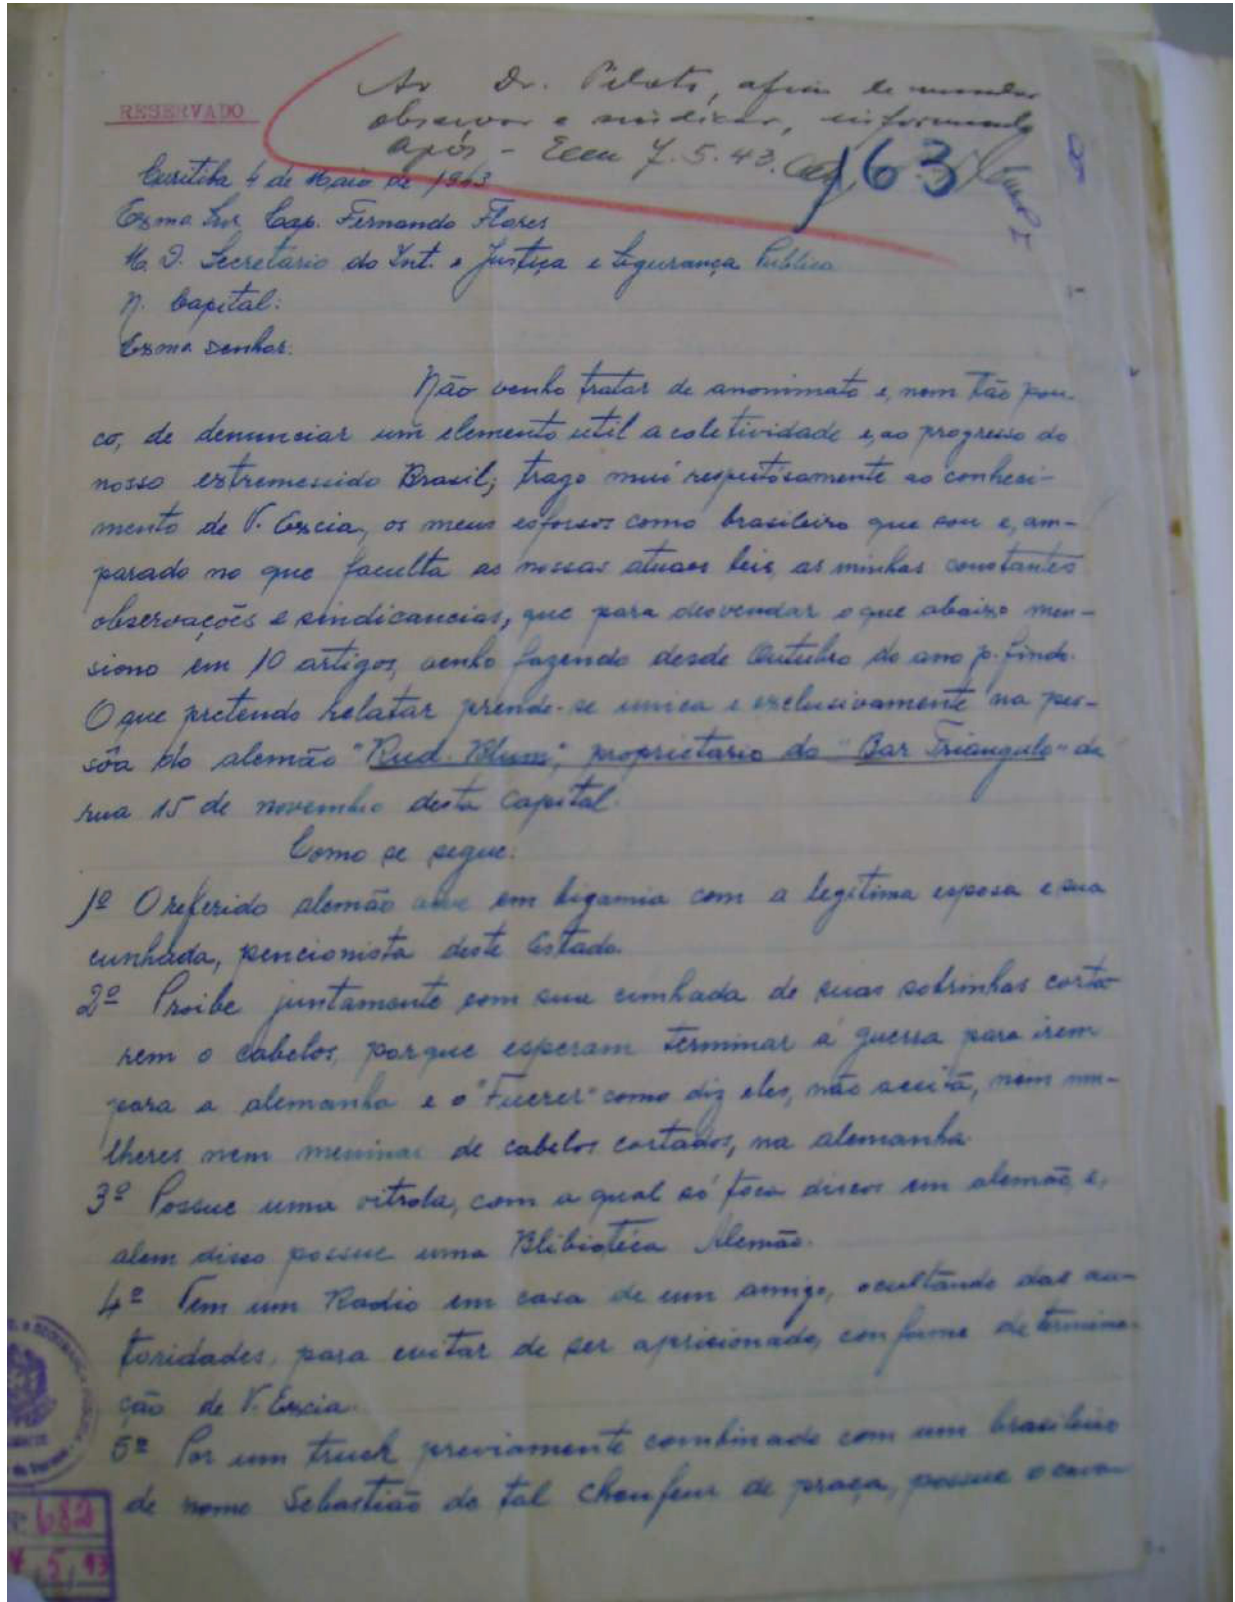 RESERVADO
Ao Dr. Piloto, afim de mandar
observar e sindicar, informando
após - Em 7.5.43.
163
Curitiba 4 de Maio de 1943
Exmo Snr. Cap. Fernando Flores
M. D. Secretario do Int. e Justiça e Segurança Publica
N. Capital:
Exmo Senhor.
Não venho tratar de anonimato e, nem tão pou-
co, de denunciar um elemento util a coletividade e, ao progresso do
nosso extremessido Brasil; trago mui respeitósamente ao conheci-
mento de V. Excia, os meus esforsos como brasileiro que sou e, am-
parado no que faculta as nossas atuaes leis, as minhas constantes
observações e sindicancias, que para desvendar o que abaixo men-
siono em 10 artigos, venho fazendo desde Outubro do ano p. findo.
O que pretendo relatar prende-se unica e exclusivamente na pes-
sôa do alemão "Rud. Blum", proprietario do "Bar Triangulo" da
rua 15 de novembro desta Capital.
Como se segue:
1º O referido alemão vive em bigamia com a legitima esposa e sua
cunhada, pencionista deste Estado.
2º Proibe juntamente com sua cunhada de suas sobrinhas corta-
rem o cabelos, porque esperam terminar a guerra para irem
para a alemanha e o "Fuerer" como diz eles, não aceita, nem mu-
lheres nem meninas de cabelos cortados, na alemanha
3º Possue uma vitrola, com a qual só toca discos em alemão, e,
alem disso possue uma Blibiotéca Alemão.
4º Tem um Radio em casa de um amigo, ocultando das au-
toridades, para evitar de ser aprisionado, conforme determina-
ção de V. Excia.
5º Por um truck previamente combinado com um brasileiro
de nome Sebastião de tal choufeur de praça, possue o
Nº 682
7, 5, 43